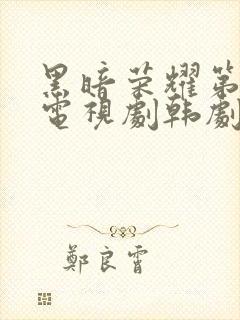 黑暗荣耀第
電視劇韩劇
鄭良霄